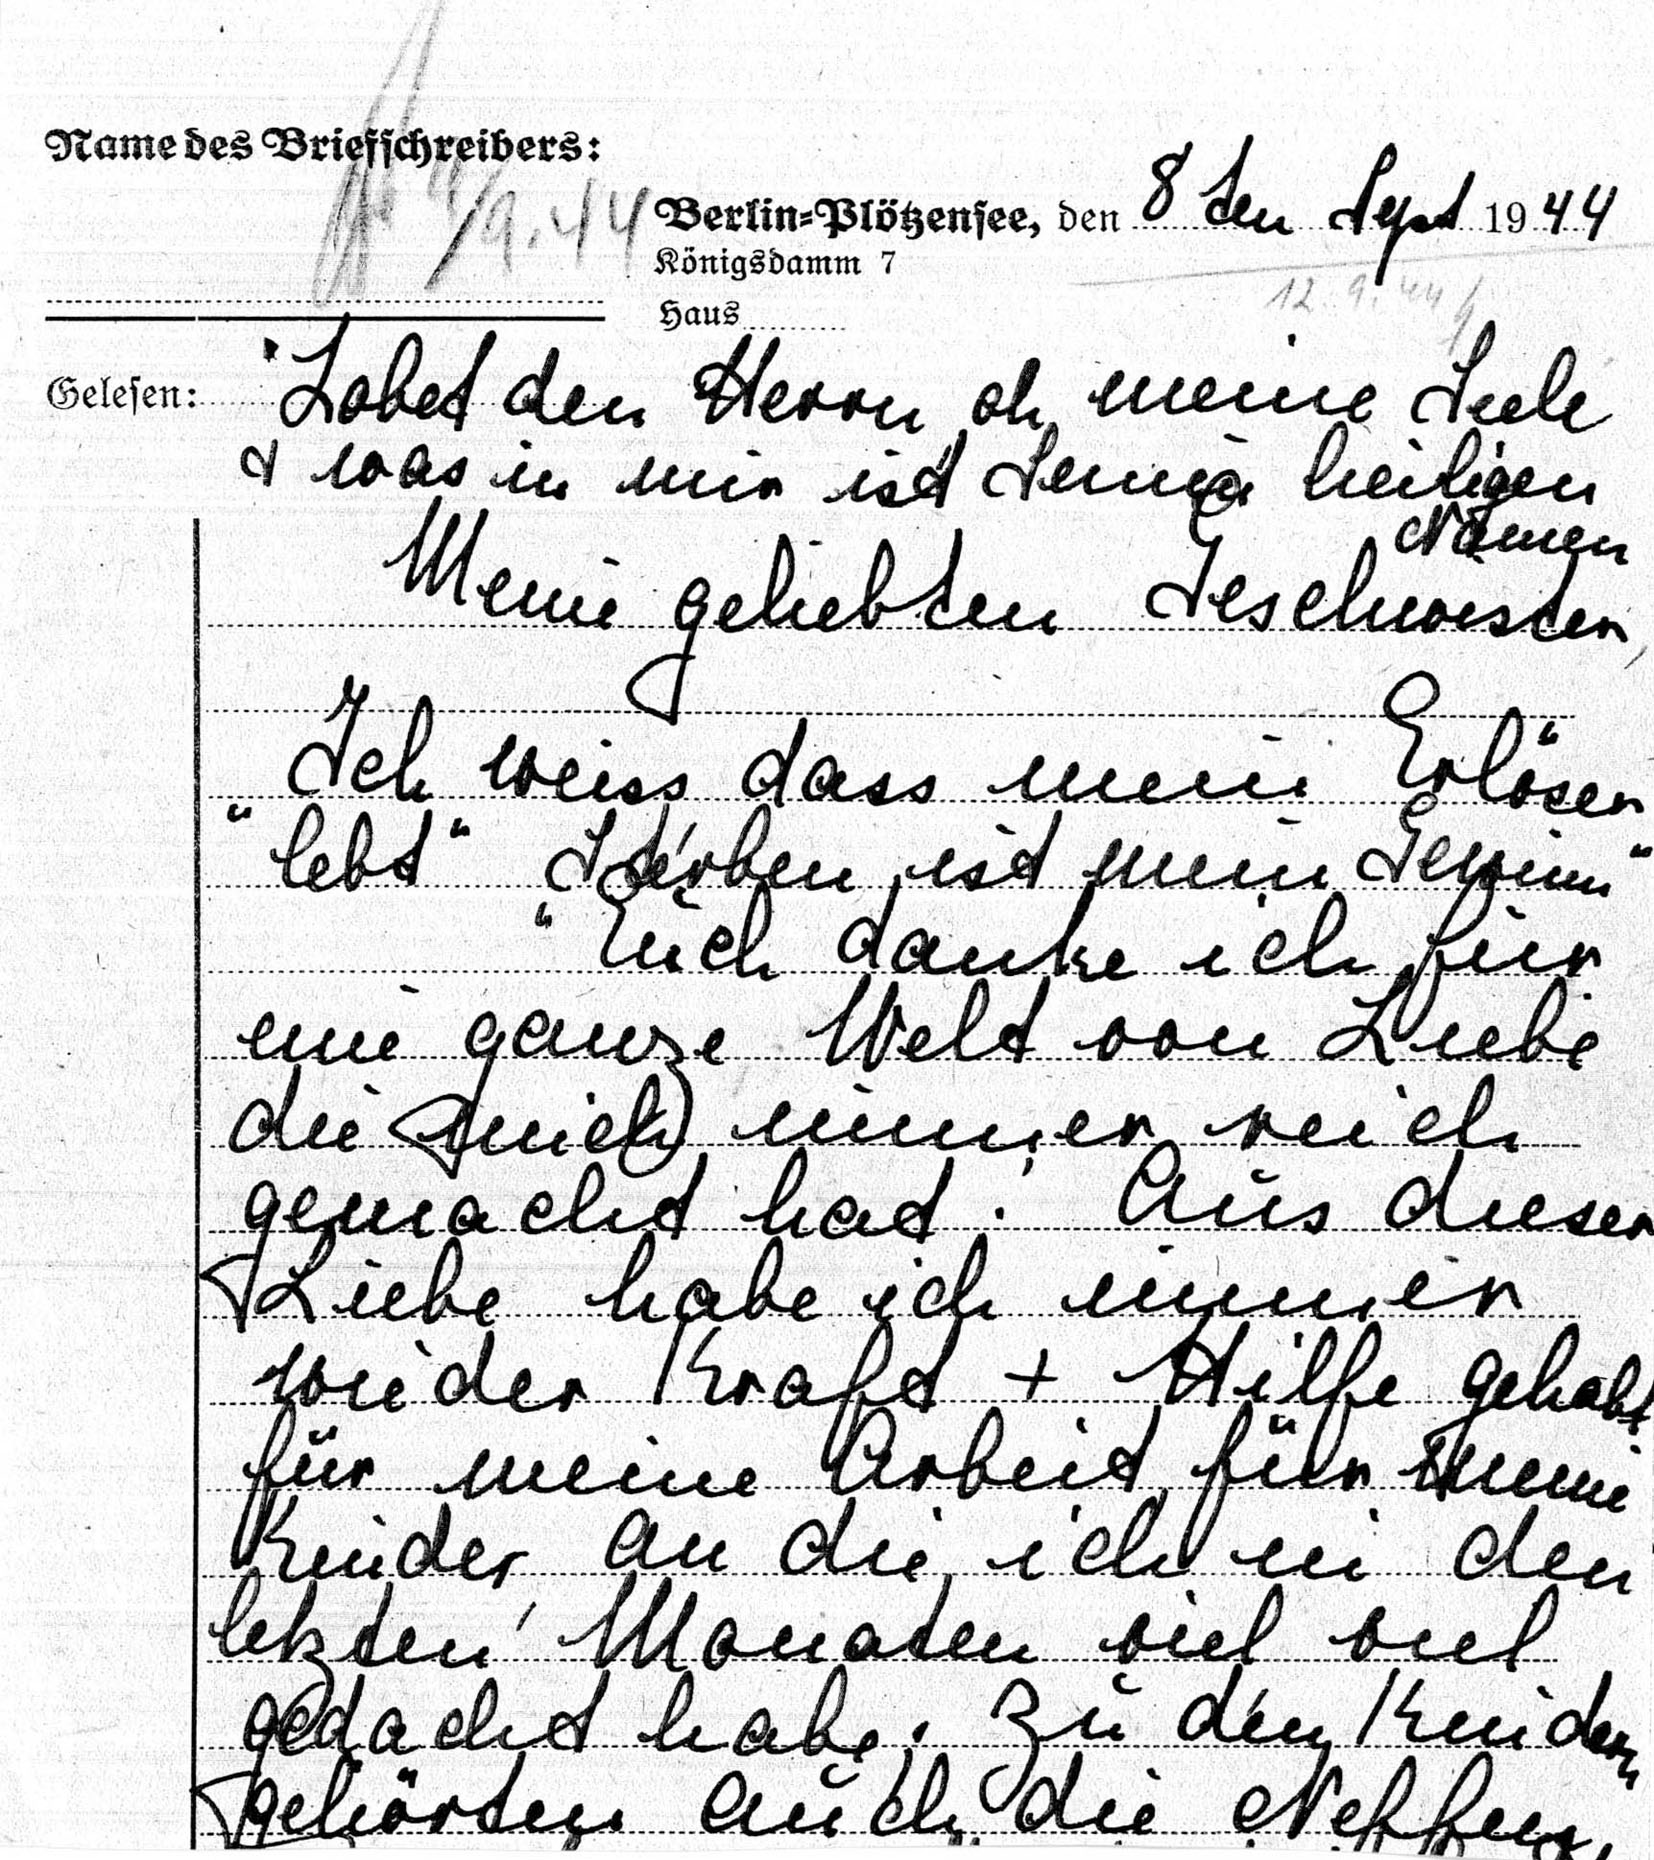 Name des Briefschreibers:
9.44
Berlin-Plötzensee, den 8 ten Sept 1944
Königsdamm 7
12.9.44
Haus
Gelesen:
"Lobet den Herrn oh meine Seele
& was in mir ist Seinen heiligen
Namen
Meine geliebten Geschwister,
Ich weiss dass mein Erlöser
"lebt" Sterben ist mein Gewinn"
"Euch danke ich für
eine ganze Welt von Liebe
die mich immer reich
gemacht hat. Aus dieser
Liebe habe ich immer
wieder Kraft + Hilfe gehabt
für meine Arbeit, für meine
Kinder, an die ich in den
letzten Monaten viel viel
gedacht habe. Zu den Kindern
gehörten auch die Neffen,